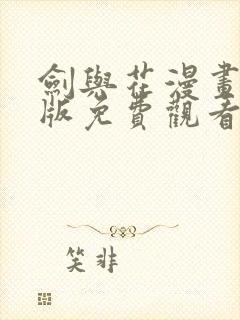 劍與花漫畫
版免費觀看
笑非